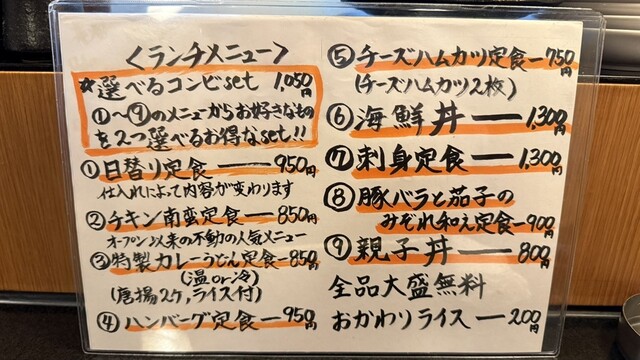 〈ランチメニュー〉
☆選べるコンビset 1,050円
①〜⑨のメニューからお好きなもの
を2つ選べるお得なset!!
①日替り定食ー950円
仕入れによって内容が変わります
②チキン南蛮定食ー850円
オープン以来の不動の人気メニュー
③特製カレーうどん定食ー850円
(温or冷)
(唐揚2ケ,ライス付)
④ハンバーグ定食ー950円
⑤チーズハムカツ定食ー750円
(チーズハムカツ2枚)
⑥海鮮丼ー1,300円
⑦刺身定食ー1,300円
⑧豚バラと茄子の
みぞれ和え定食ー900円
⑨親子丼ー800円
全品大盛無料
おかわりライスー200円